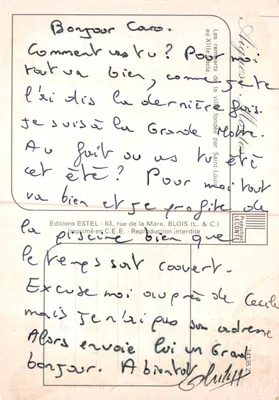 Bonjour Caro.
Comment vas tu ? Pour moi
tout va bien, comme je te
l'ai dis la dernière fois.
Je suis à la Grande Motte.
Au fait ou as tu été
cet été ? Pour moi tout
va bien et je profite de
la piscine bien que
le temps soit couvert.
Excuse moi auprès de Cecile
mais je n'ai pas son adresse
Alors envoie lui un Grand
bonjour. A bientot
Les remparts de la ville fondée par Saint-Louis
au XIIIe siècle
Editions ESTEL - 63, rue de la Mare, BLOIS (L. & C.)
Imprimé en C.E.E. - Reproduction interdite